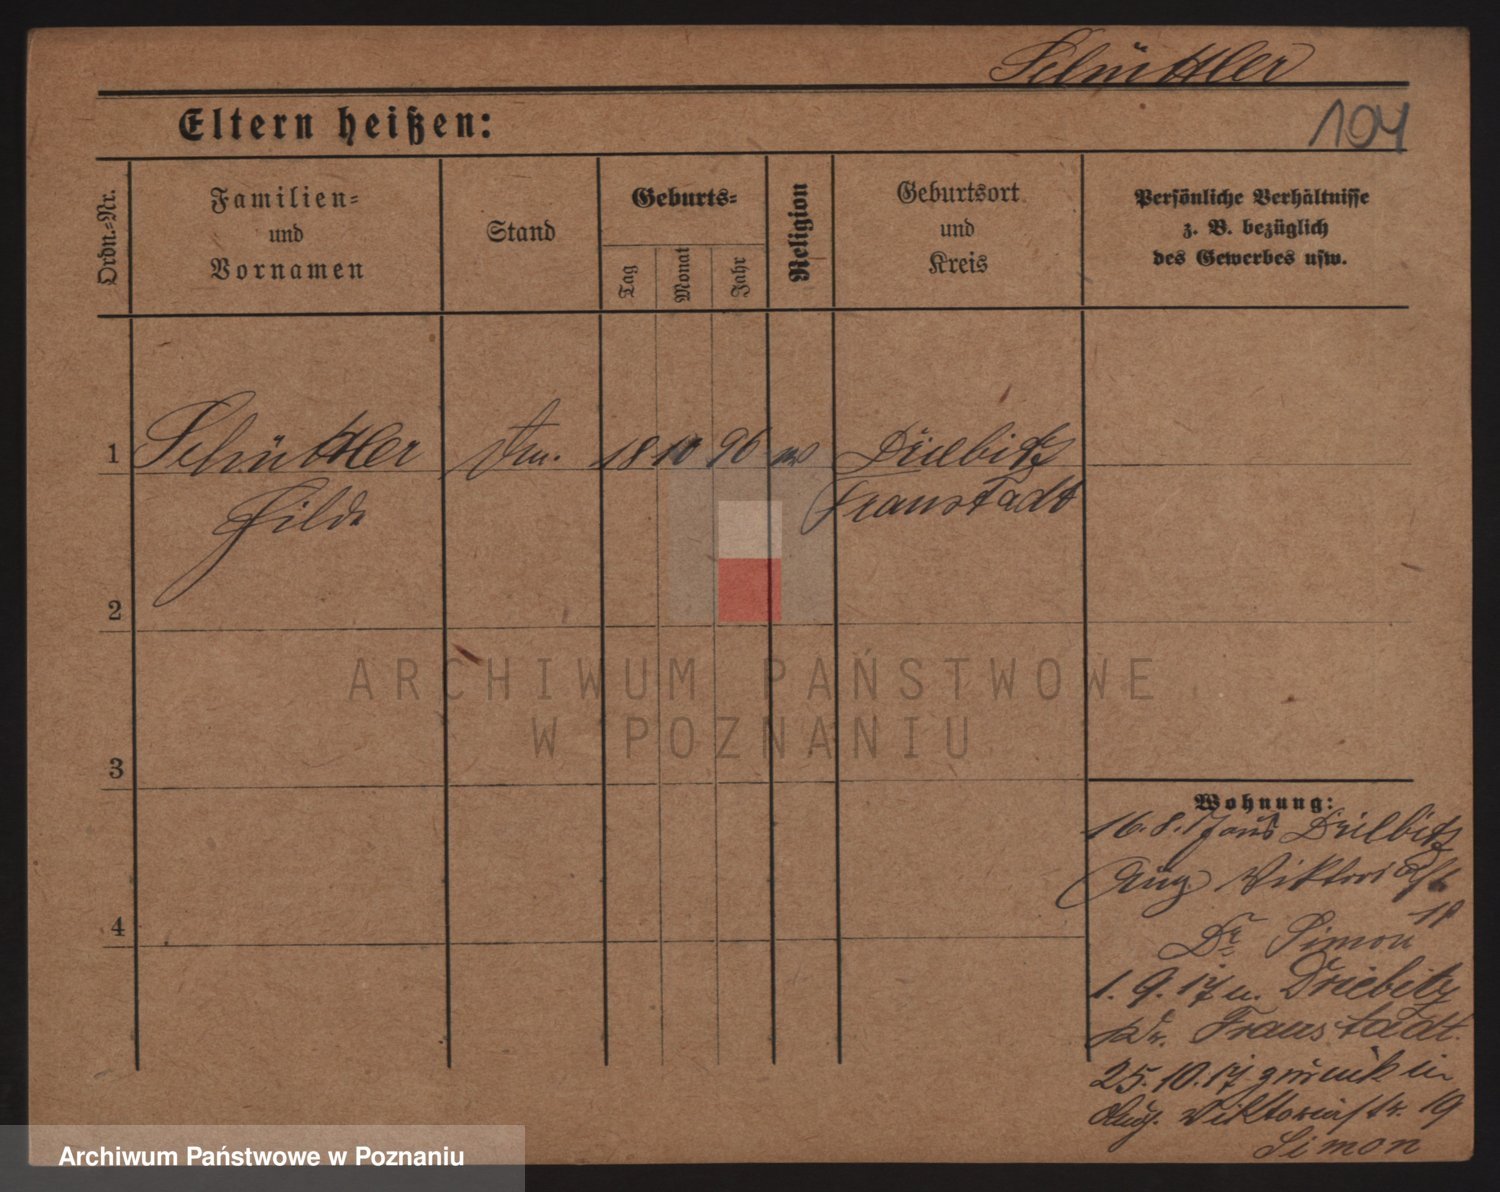 Schüttler
104
Eltern heißen:
Ordn.-Nr.
Familien-
und
Vornamen
Stand
Geburts-
Tag
Monat
Jahr
Religion
Geburtsort
und
Kreis
Persönliche Verhältnisse
z. B. bezüglich
des Gewerbes usw.
1
Schüttler
Hilde
18 10 96
Driebitz
Fraustadt
2
3
4
Wohnung:
16. 8. 17 aus Driebitz
Aug Viktoriastr
Dr Simon
1. 9. 17 n. Driebitz
Kr. Fraustadt.
25. 10. 17 zurück in
Aug. Viktoriastr. 19
Simon
ARCHIWUM PAŃSTWOWE
W POZNANIU
Archiwum Państwowe w Poznaniu